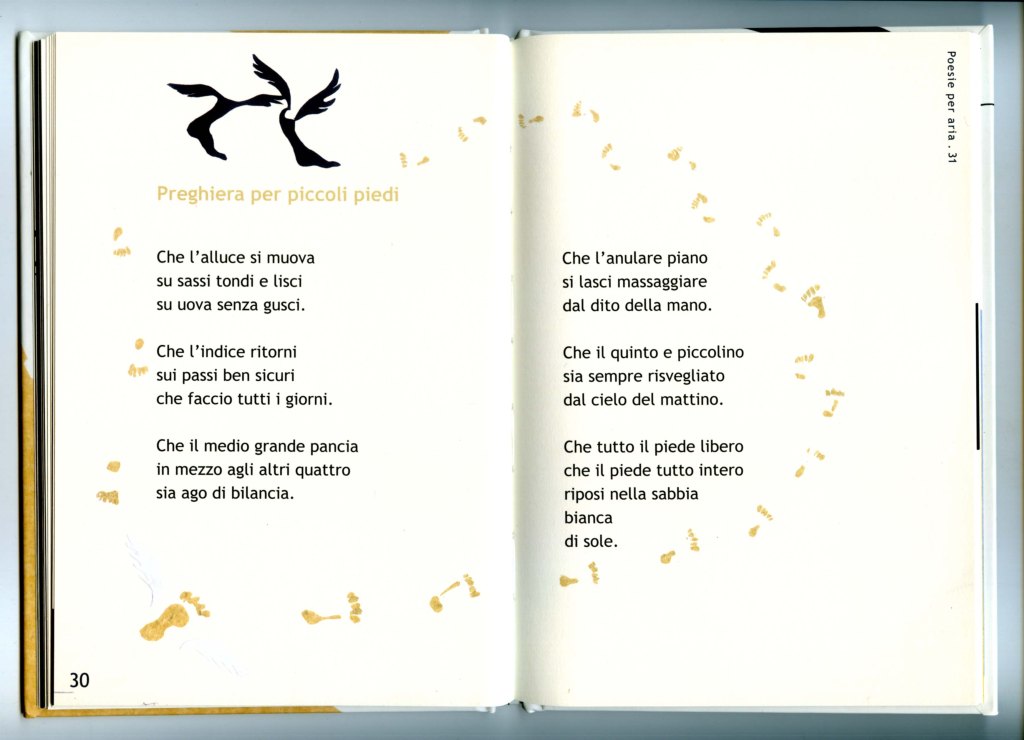 Preghiera per piccoli piedi
Che l'alluce si muova
su sassi tondi e lisci
su uova senza gusci.
Che l'indice ritorni
sui passi ben sicuri
che faccio tutti i giorni.
Che il medio grande pancia
in mezzo agli altri quattro
sia ago di bilancia.
30
Poesie per aria . 31
Che l'anulare piano
si lasci massaggiare
dal dito della mano.
Che il quinto e piccolino
sia sempre risvegliato
dal cielo del mattino.
Che tutto il piede libero
che il piede tutto intero
riposi nella sabbia
bianca
di sole.